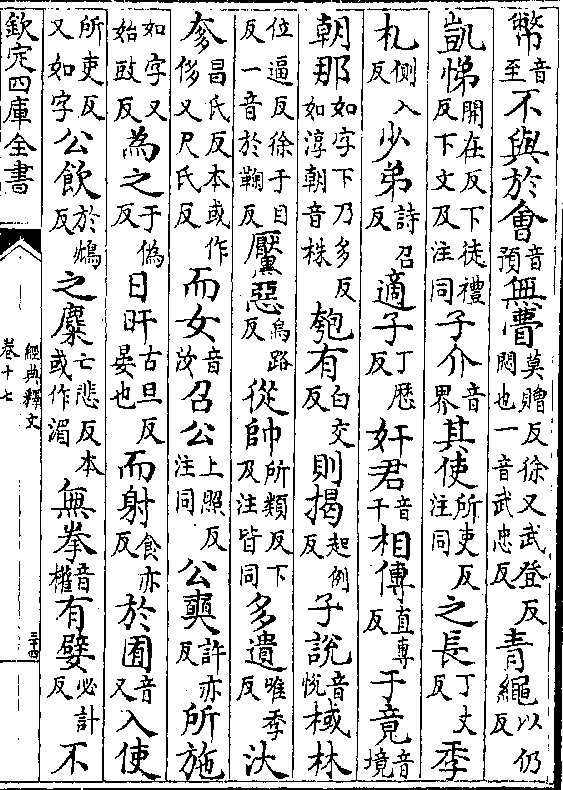 幣音至不與於會音預無瞢莫贈反徐又武登反悶也一音武忠反青繩以仍反
凱悌開在反下徒禮反下文及注同子介音界其使所吏反注同之長丁丈反季
札側入反少弟詩召反適子丁歷反奸君音干相傳直專反于竟音境
朝那如字下乃多反如淳朝音株匏有白交反則揭起例反子說音悅棫林
位逼反徐于目反一音於鞠反黶惡烏路反從帥所類反下及注皆同多遺唯季反汏
奓昌氏反本或作侈又尺氏反而女音汝召公上照反注同公奭許亦反所施
如字又始豉反為之于偽反日旰古旦反晏也而射食亦反於囿音又入使
所吏反又如字公飲於鴆反之麋亡悲反本或作湄無拳音權有嬖必計反不
欽定四庫全書
經典釋文
卷十七
三十四